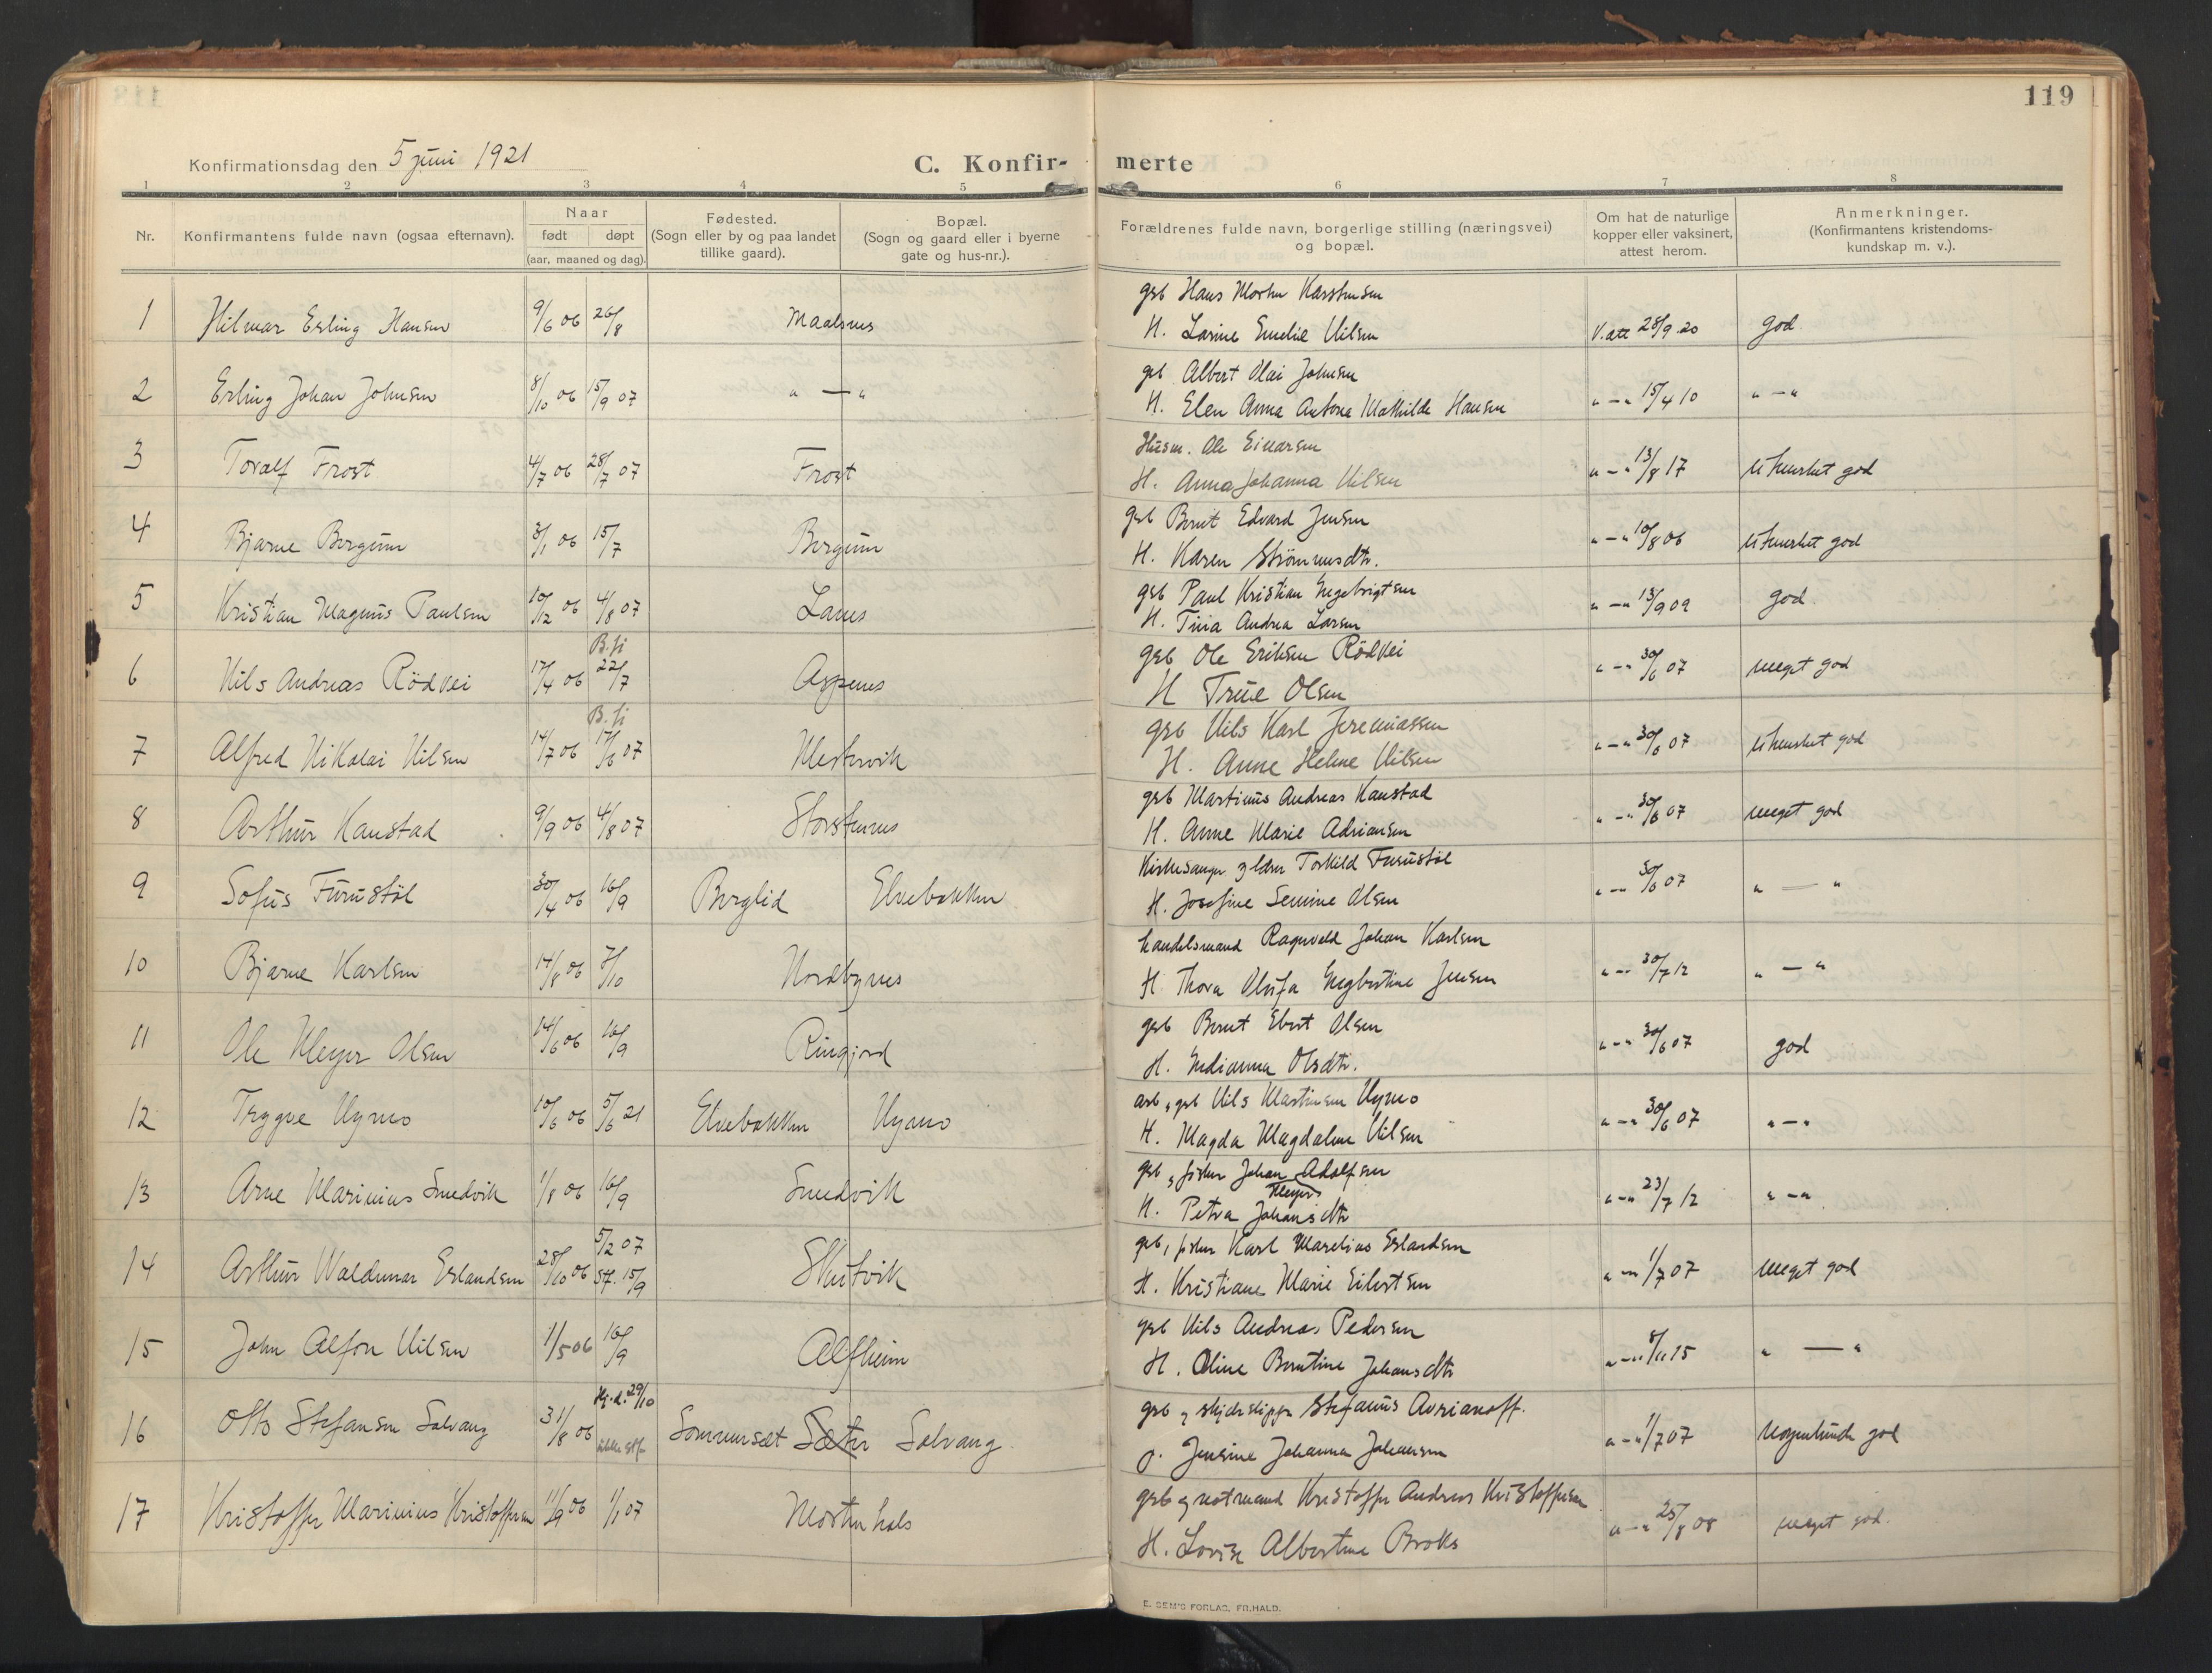 119
Konfirmationsdag den 5 juni 1921
C. Konfir- merte
1 2 3 4 5 6 7 8
Nr.
Konfirmantens fulde navn (ogsaa efternavn).
Naar
født døpt
(aar, maaned og dag).
Fødested.
(Sogn eller by og paa landet
tillike gaard).
Bopæl.
(Sogn og gaard eller i byerne
gate og hus-nr.).
Forældrenes fulde navn, borgerlige stilling (næringsvei)
og bopæl.
Om hat de naturlige
kopper eller vaksinert,
attest herom.
Anmerkninger.
(Konfirmantens kristendoms-
kundskap m. v.).
gsb Hans Morten Karstensen
1 Hilmar Erling Hansen 9/6 06 26/8 Maalsnes
H. Larine Emelie Nilsen V. att 28/9.20 god.
gsb Albert Olai Johnsen
2 Erling Johan Johnsen 8/10 06 15/9 07 " — "
H. Elen Anna Antona Mathilde Hansen " — " 15/4 10 " — "
Husm. Ole Einarsen
3 Toralf Frost 4/7 06 28/7 07 Frost
H. Anna Johanna Nilsen " — " 13/8 17 utmerket god
gsb Bernt Edvard Jensen
4 Bjarne Bergum 3/1 06 15/7 Bergum
H. Karen Strømmesdtr. " — " 10/8 06 utmerket god
gsb Paul Kristian Ingebrigtsen
5 Kristian Magnus Paulsen 10/12 06 4/8 07 Lanes
H. Tina Andrea Larsen " — " 13/9 09 god.
B. fj
gsb Ole Eriksen Rödvei
6 Nils Andreas Rödvei 17/4 06 22/7 Aspenes
H Trine Olsen " — " 30/6 07 meget god
B. fj
gsb Nils Karl Jeremiassen
7 Alfred Nikolai Nilsen 14/7 06 17/6 07 Mestervik
H. Anne Helene Nilsen " — " 30/6 07 utmerket god
gsb Martinus Andreas Kanstad
8 Arthur Kanstad 9/9 06 4/8 07 Storstennes
H. Anne Marie Adriansen " — " 30/6 07 meget god
Kirkesanger og lærer Torkild Furustöl
9 Sofus Furustöl 30/4 06 16/9 Berglid Elvebakken
H. Josefine Semine Olsen " — " 30/6 07 " — "
handelsmand Ragnvald Johan Karlsen
10 Bjarne Karlsen 14/8 06 7/10 Nordbynes
H. Thora Olufa Ingebertine Jensen " — " 30/7 12 " — "
gsb Bernt Ebert Olsen
11 Ole Meyer Olsen 14/6 06 16/9 Ringjord
H. Indianna Olsdtr. " — " 30/6 07 god
arb, gsb Nils Martinsen Nymo
12 Trygve Nymo 10/6 06 5/6 21 Elvebakken Nymo
H. Magda Magdalene Nilsen " — " 30/6 07 " — "
gsb, fisker Johan Adolfsen
Meyer
13 Arne Marinius Smedvik 1/8 06 16/9 Smedvik
H. Petra Johansdtr " — " 23/7 12 " — "
5/2 07
gsb, fisker Karl Marelius Erlandsen
14 Arthur Waldemar Erlandsen 28/10 06 Stf. 15/9 Skutvik
H. Kristiane Marie Eilertsen " — " 1/7 07 meget god
gsb Nils Andreas Pedersen
15 John Alfon Nilsen 1/5 06 16/9 Alfheim
H. Oline Berntine Johansdtr " — " 8/11 15 " — "
Hj. d. 29/10
gsb og skjideskipper Stefanus Avrianoff.
16 Otto Stefansen Solvang 31/8 06 ikke stf. Sommerset Sæter Solvang
g. Jensine Johanna Johansen " — " 1/7 07 nogenlunde god
gsb og notmand Kristoffer Andreas Kristoffersen
17 Kristoffer Marinius Kristoffersen 11/9 06 1/1 07 Mortenhals
H. Lovise Albertine Broks " — " 25/8 08 meget god.
E. SEM'S FORLAG, FR.HALD.